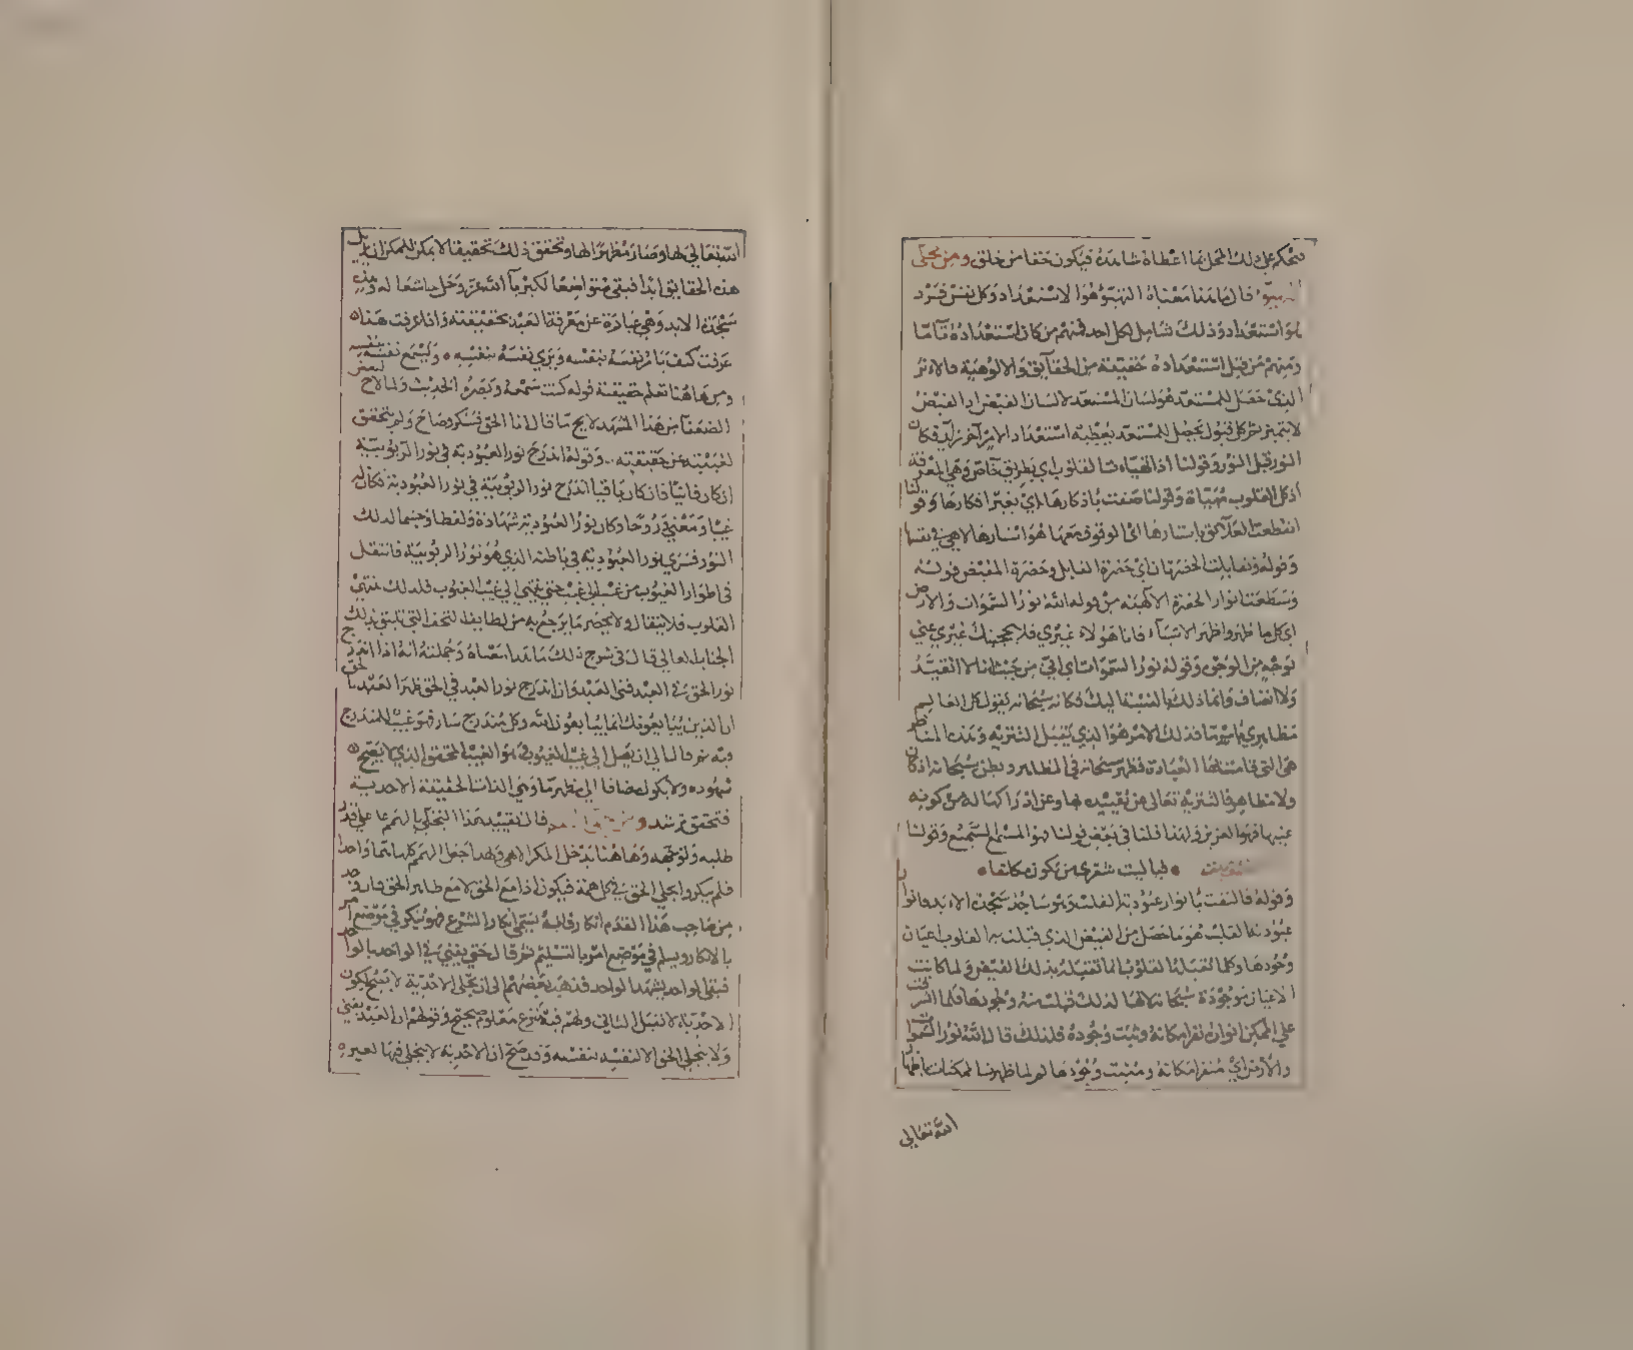 تحكم على ذلك المحل بما اعطاه شاهده فيكون حقا من خلق ومن تجلي
التهيؤ قال ما هذا معناه التهيؤ هو الاستعداد وكل نفس فرد
لها استعداد وذلك شامل لكل احد فمنهم من كان استعداده تاما
ومنهم من قبل استعداده حقيقة من الحقايق والالوهية فالاثر
الذي حصل للمستعد هو لسان المستعد لا لسان الفيض اذ الفيض
لا يتميز ثم كل قبول يحصل للمستعد يعطيه استعدادا لامر آخر زايد فكان
النور قبل النور وقولنا اذا تهيات القلوب اي بطريق خاص وهي المعرفة
اذ كل القلوب مهياة وقولنا صفت باذكارها اي بغير افكارها وقولنا
انقطعت العلائق باستارها اي الوقوف معها هو استارها لا هي في نفسها
وقوله وتقابلت الحضرتان اي حضرة القابل وحضرة المفيض قوله
وسطعت انوار الحضرة الالهية من قوله الله نور السموات والارض
اي كل ما ظهر واظهر الاشياء فانا هو لا غيري فلا يحجبنك غيري عني
بوجه من الوجوه وقوله نور السموات اي اني من حيث انا لا اتقيد
ولا اتصاف وانما ذلك بالنسبة اليك فكانه سبحانه يقول كل العالم
مظاهري باسرها فذلك الامر هو الذي يقبل التنزيه وهذه المناظر
هي التي قامت لها العبادة فظهر سبحانه في المظاهر وبطن سبحانه اذ كان
ولا مظاهر فالتنزيه تعالى عن تقييده بها وعن ادراكها له من كونه
عينها فهو العزيز ولهذا قلنا في بعض قولنا فهو المسمع السميع وقولنا
فيا ليت شعري من يكون مكلفا
وقوله فالتفت بانوار عبودية القلب وهو ساجد سجدة الابد فانوار
عبودية القلب هو ما حصل من الفيض الذي قبلت به القلوب اعيان
وجودها وكلما تقبله القلوب انما تقبله بذلك الفيض ولما كانت
الاعيان موجودة سبحانه لها لذلك قبلت منه وجودها فلما اشرقت
على الممكن انوار نفر امكانه وثبت وجوده فلذلك قال الله نور السموات
والارض اي منفر امكانه ومثبت وجودها ثم لما ظهرت الممكنات باظهار
الله تعالى
الله تعالى لها وصار مظهرا لها وتحقق ذلك تحقيقا لا يمكن للممكن ان يزيل
هذه الحقايق ابدا فبقي متواضعا لكبرياء الله عز وجل خاشعا له وهذه
سجدة الابد وهي عبارة عن معرفة العبد بحقيقته واذا عرفت هذا
عرفت كيف يامر نفسه بنفسه ويرى نفسه بنفسه ويسمع نفسه بنفسه
ومن هاهنا تعلم حقيقة قوله كنت سمعه وبصره الحديث ولما لاح لبعض
الضعفا من هذا المشهد لايح ما قال انا الحق فسكر وصاح ولم يتحقق
لغيبته عن حقيقته وقوله اندرج نور العبودية في نور الربوبية
ان كان فانيا فان كان باقيا اندرج نور الربوبية في نور العبودية فكان له
غيبا ومعنى وروحا وكان نور العبودية شهادة ولفظا وجسما لذلك
النور فسرى نور العبودية في باطنه الذي هو نور الربوبية فانتقل
في اطوار الغيوب من غيب الى غيب حتى ينتهي الى غيب الغيوب فذلك منتهى
القلوب فلا ينتقال ولا يحصر ما يرجع به من لطايف التحف التي تليق بذلك
الجناب العالي قال في شرح ذلك ما هذا معناه وجملته انه اذا اندرج
نور الحق في العبد فنى العبد وان اندرج نور العبد في الحق ظهر العبد بالحق
ان الذين يبايعونك انما يبايعون الله وكل مندرج سار فهو غيب للمندرج
فيه ثم قال الى ان يصل الى غيب الغيوب في هو الغيب المحقق الذي لا يصح
شهوده ولا يكون مضافا الى مظهر ما وهي الذات الحقيقة الاحدية
فتحقق ترشد ومن تجلي الهمم قال تقييد هذا التجلي بالهمم على قدر
طلبه وتوجهه وهاهنا يدخل المكر الالهي ولهذا جعل الهمم كلها هما واحدا
فلم يبكر وتجلي الحق في كل همة فيكون اذا مع الحق لا مع ظاهر الحق فان وجد
من صاحب هذا القدم انكار فانه يسمى انكار الشرع فهو ينكر في موضع امر
بالانكار ويسلم في موضع امر بالتسليم ثم قال حتى يفنى في الواحد بالواحد
فيبقى الواحد يشهد الواحد فذهب بعضهم الى ان تجلي الاحدية لا يصح لكون
الاحدية لا تقبل الثاني ولهم فيه منزع معلوم صحيح وقولهم ان العبد يفنى
ولا يتجلى الحق الا لنفسه بنفسه وقد صح ان الاحدية لا يتجلى فيها لغيره